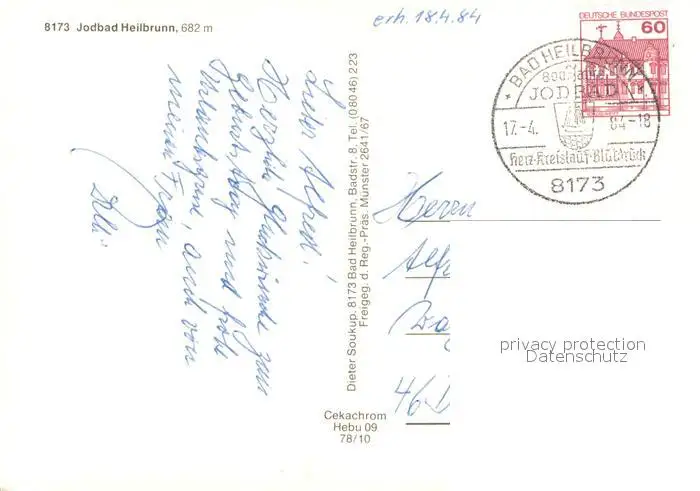 8173 Jodbad Heilbrunn, 682 m
erh. 18.4.84
DEUTSCHE BUNDESPOST
60
BAD HEILBRUNN
800 Jahre
JODBAD
17.-4. 84-18
Herz-Kreislauf-Blutdruck
8173
Lieber Alfred!
Herzliche Glückwünsche zum
Geburtstag und frohe
Urlaubsgrüsse, auch von
meiner Frau
Dieter Soukup. 8173 Bad Heilbrunn, Badstr. 8, Tel. (08046) 223
Freigeg. d. Reg.-Präs. Münster 2641/67
Cekachrom
Hebu 09
78/10
Herrn
Alf
46 D
privacy protection
Datenschutz